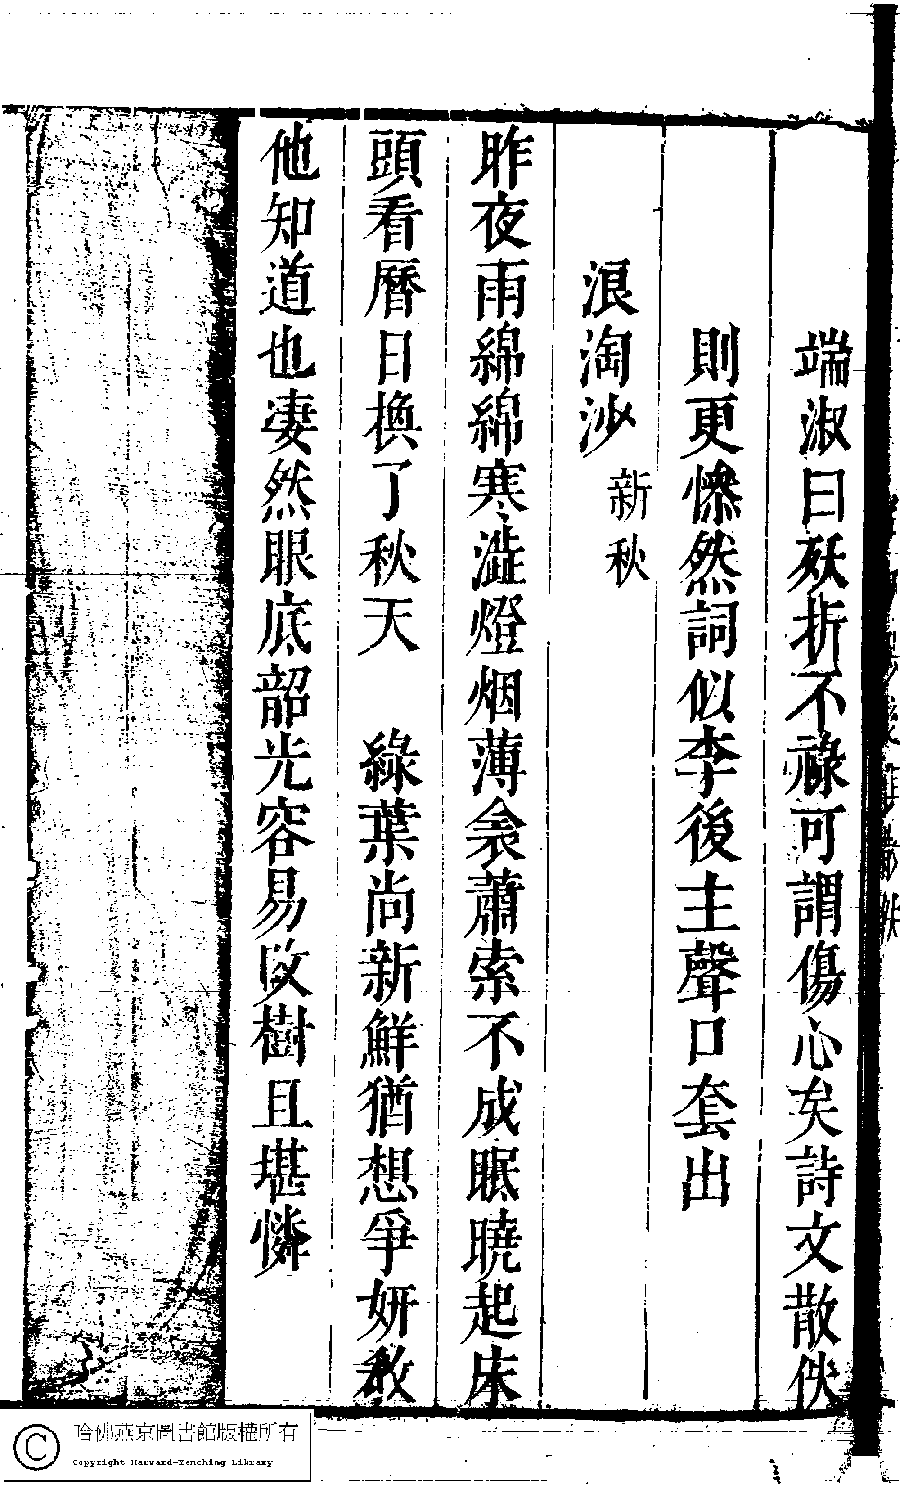 端淑曰殀折不祿可謂傷心矣詩文散佚
則更慘然詞似李後主聲口套出
浪淘沙 新秋
昨夜雨綿綿寒澁燈烟薄衾蕭索不成眠曉起床
頭看曆日換了秋天 綠葉尚新鮮猶想爭妍敎
他知道也凄然眼底韶光容易改樹且堪憐
哈佛燕京圖書館版權所有
Copyright Harvard-Yenching Library